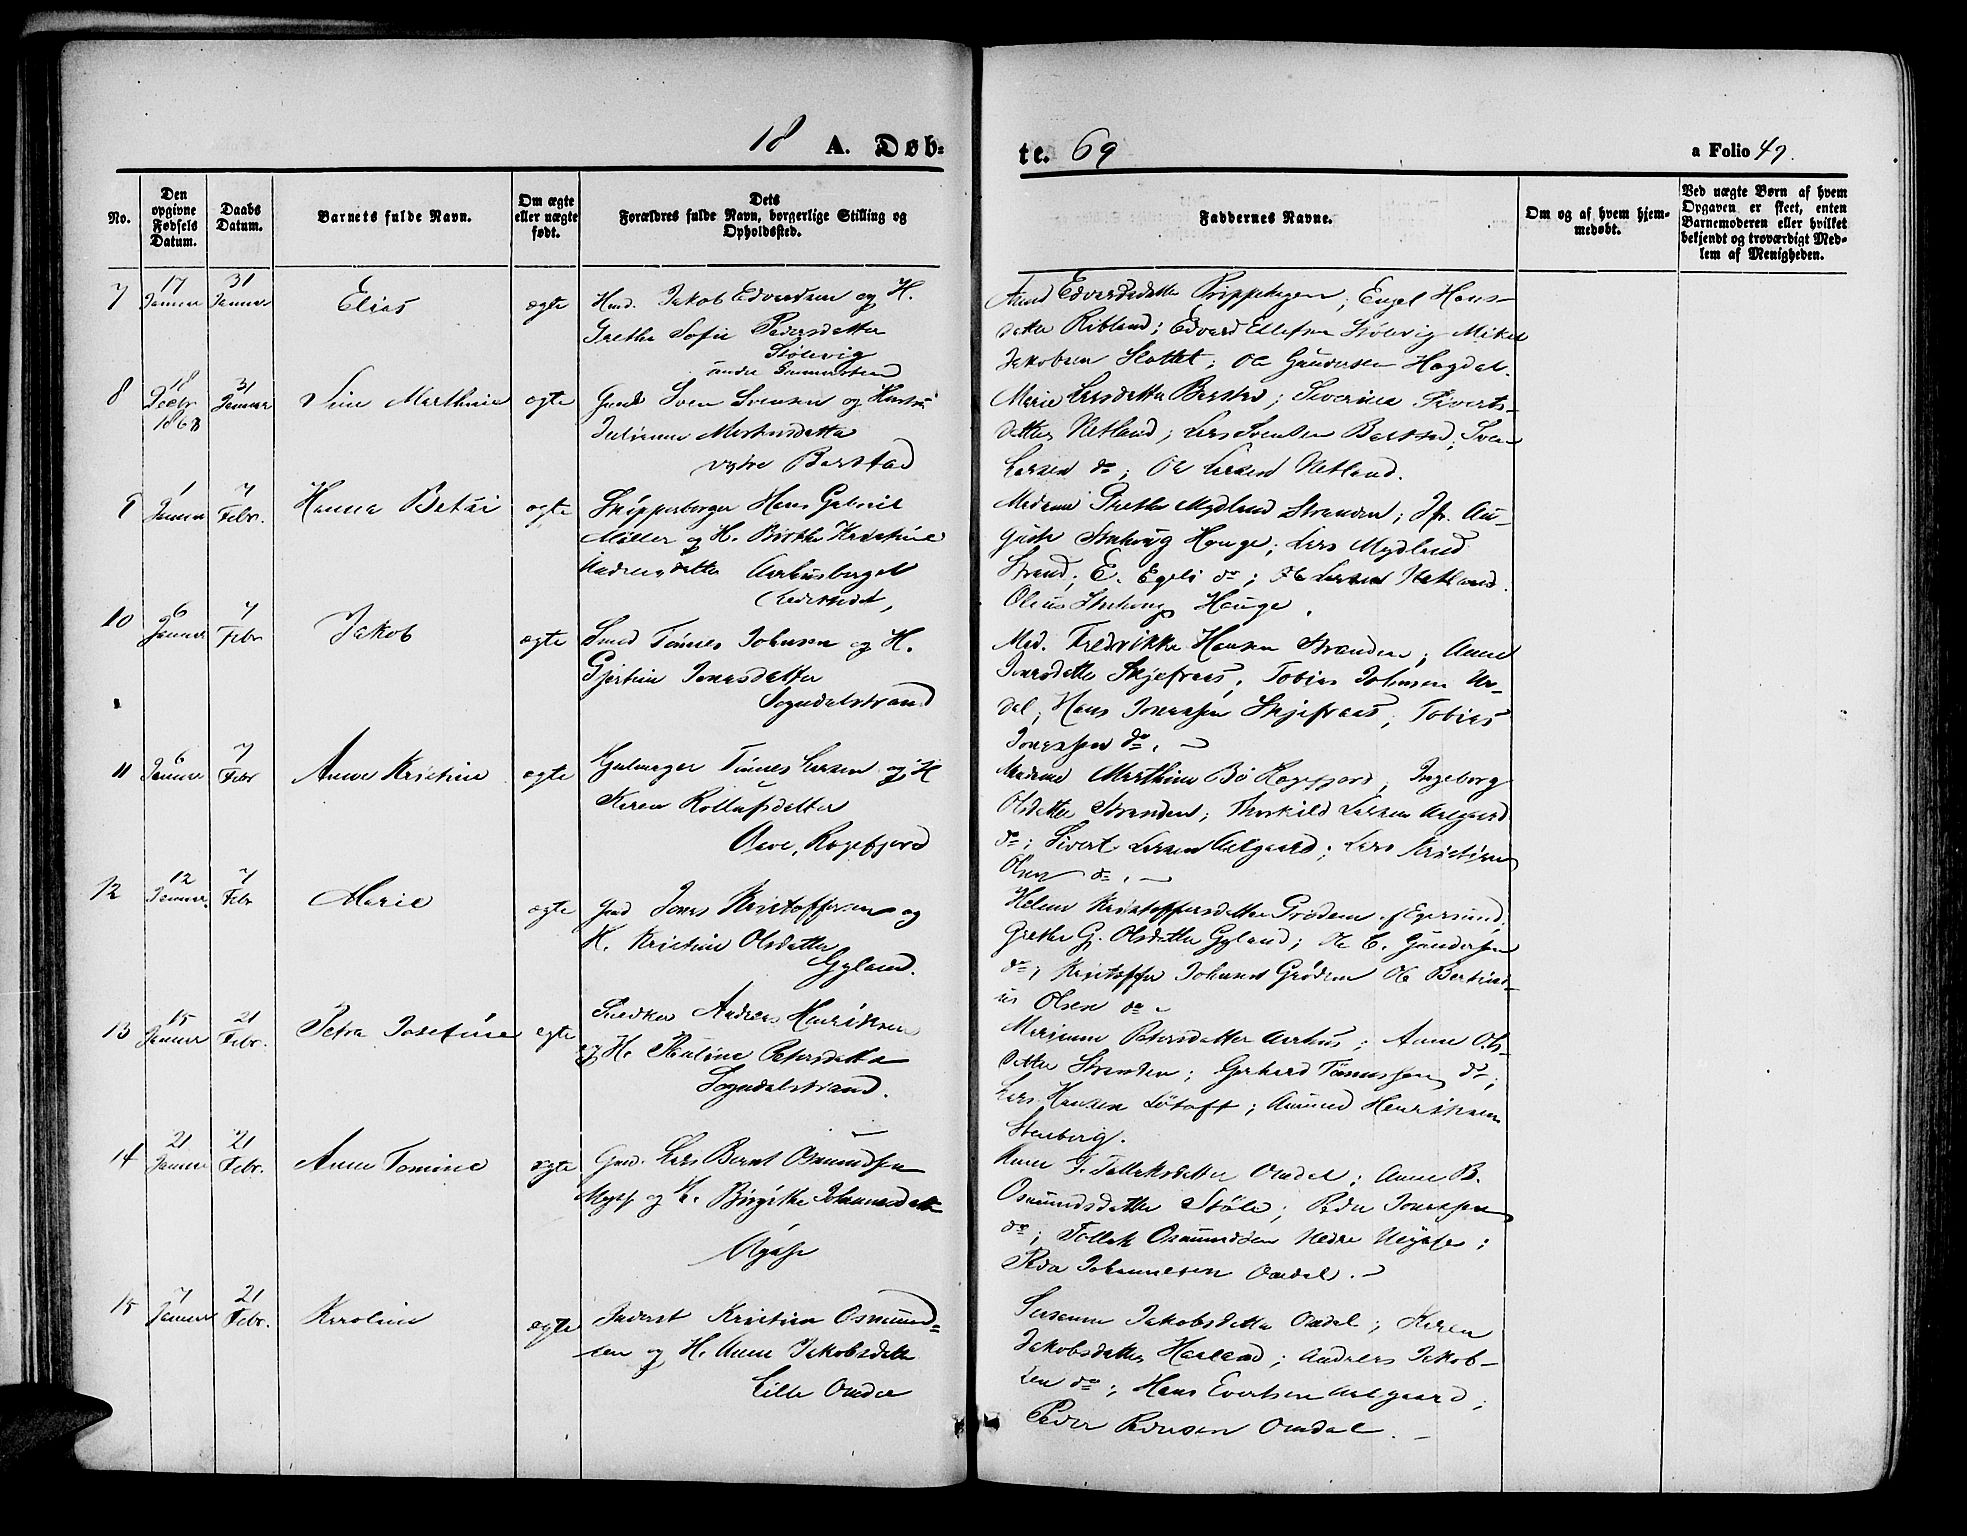 18 A. Døb=
te. 69
a Folio 47.
No.
Den opgivne Fødsels Datum.
Daabs Datum.
Barnets fulde Navn.
Om ægte eller uægte født.
Dets Forældres fulde Navn, borgerlige Stilling og Opholdssted.
Faddernes Navne.
Om og af hvem hjemmedøbt.
Ved uægte Børn af hvem Opgaven er skeet, enten Barnemoderen eller hvilket bekjendt og troværdigt Medlem af Menigheden.
7
17 Januar
31 Januar
Elias
ægte
Jakob Edvardsen og H.
Grethe Sofie Pedersdatter
Stølevig
Edvardsdatter Engel Hans-
datter Ribland; Edvard Ellefsen Stølevig Mikel
Jakobsen Slottet; Ole Gundersen Hogdal.
8
18 Decbr 1868
31 Januar
Sine Marthine
ægte
Gmd Sven Svensen og Hustru
Juliane Mortensdatter
Barstad
Marie Larsdatter Barstad; Severine Siverts-
datter Netland; Lars Svendsen Barstad; Sven
Larsen do; Ole Larsen Netland.
9
1 Januar
7 Febr.
Hanna
ægte
Hans Gabriel
Møller og H. Birthe Kristine
Andreasdatter Aarhusberget
Madame Grethe Mydland Stranden; Jfr. Au-
Hauge; Lars Mydland
Strand; E. Egeli do; Ole Larsen Netland
Hauge.
10
6 Januar
7 Febr
Jakob
ægte
Smed Tønnes Johnsen og H.
Jonasdatter
Sogndalstrand
Mad. Fredrikke Hansen Stranden; Anne
Jonasdatter Skjefraas; Tobias Johnsen Ur-
dal; Hans Jonassen Skjefraas; Tobias
Jonassen do.
11
6 Januar
7 Febr
Anne Kristine
ægte
Tønnes Larsen og H
Karen Rollufsdatter
Aave, Rægefjord
Madame Marthine Bø Rægefjord, Ingeborg
Olsdatter Stranden; Thorkild Larsen Aalgaard
do; Sivert Larsen Aalgaard; Lars Kristian
Olsen do.
12
12 Januar.
7 Febr
Marie
ægte
Gmd Jonas Kristoffersen og
H. Kristine Olsdatter
Gyland.
Helene Kristoffersdatter Grødem Egersund;
Grethe G. Olsdatter Gyland; Ole C. Gundersen
do; Kristoffer Johnsen Grødem Ole Bertini-
us Olsen do.
13
15 Januar
21 Febr.
Petra Josefine
ægte
Snedker Andreas Henriksen
og H. Pauline Petersdatter
Sogndalstrand.
Mariane Petersdatter Aarhus; Anne Ols-
datter Stranden; Gerhard Tønnessen do;
Lars Hansen Løtoft; Aamund Henriksen
Stenberg.
14
21 Januar
21 Febr.
Anne Tomine
ægte
Gmd. Lars Bernt Osmundsen
og H. Birgithe Johannesdatter
Anne T. Tolleksdatter Omdal; Anne B.
Osmundsdatter Støle; Peder Jonassen
do; Tollek Osmundsen Nedre
Peder Johannesen Omdal.
15
7 Januar
21 Febr.
Karoline
ægte
Inderst Kristian Osmund=
sen og H. Anne Jakobsdatter
Lille Omdal
Susanne Jakobsdatter Omdal; Karen
Jakobsdatter Haaland; Andreas Jakob-
sen do; Hans Evertsen Aalgaard;
Peder Pedersen Omdal.